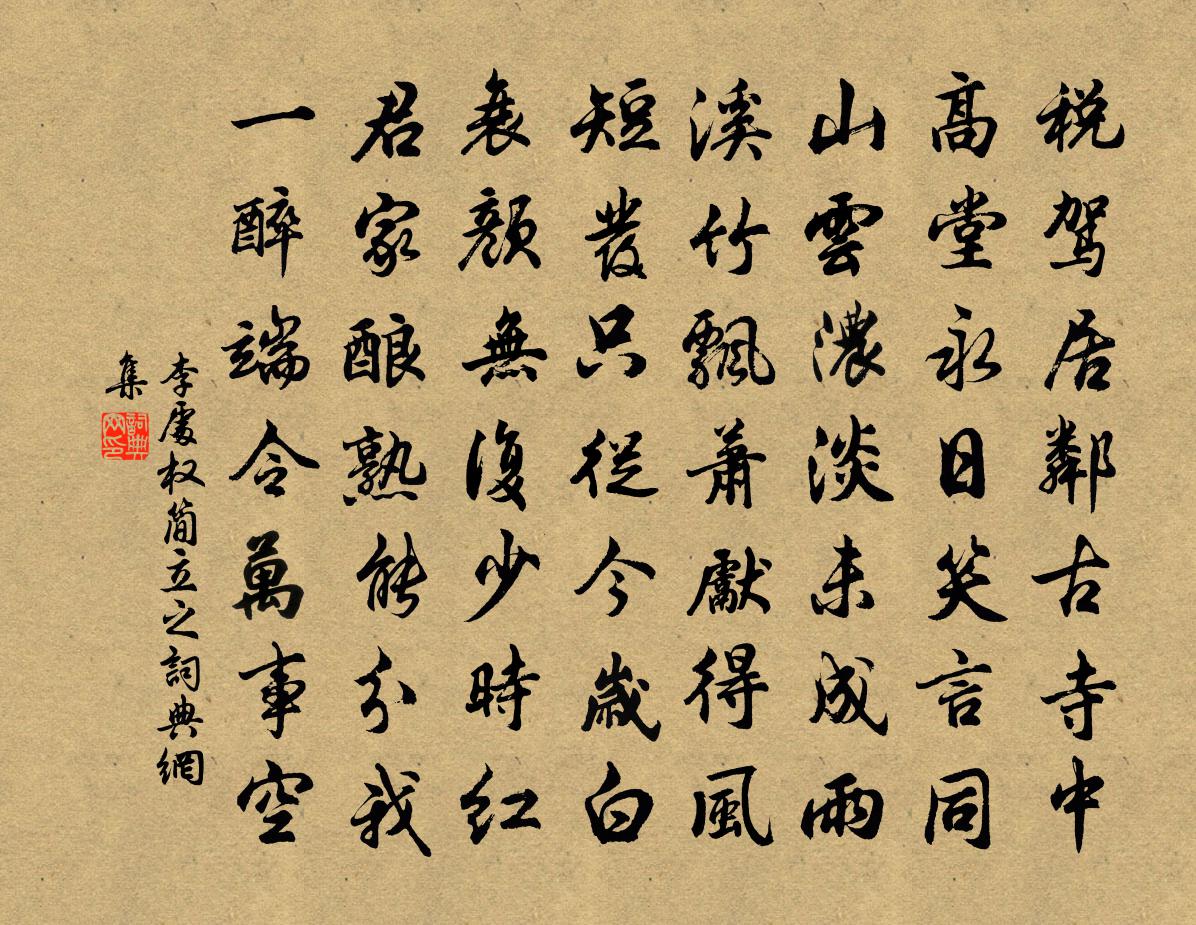 税驾居鄰古寺中
高堂永日笑言同
山雲濃淡未成雨
溪竹飄蕭獻得風
短發只從今歲白
衰顏無復少時紅
君家酿熟能分我
一醉端令萬事空
李處权简立之詞典網
集
詞典網印